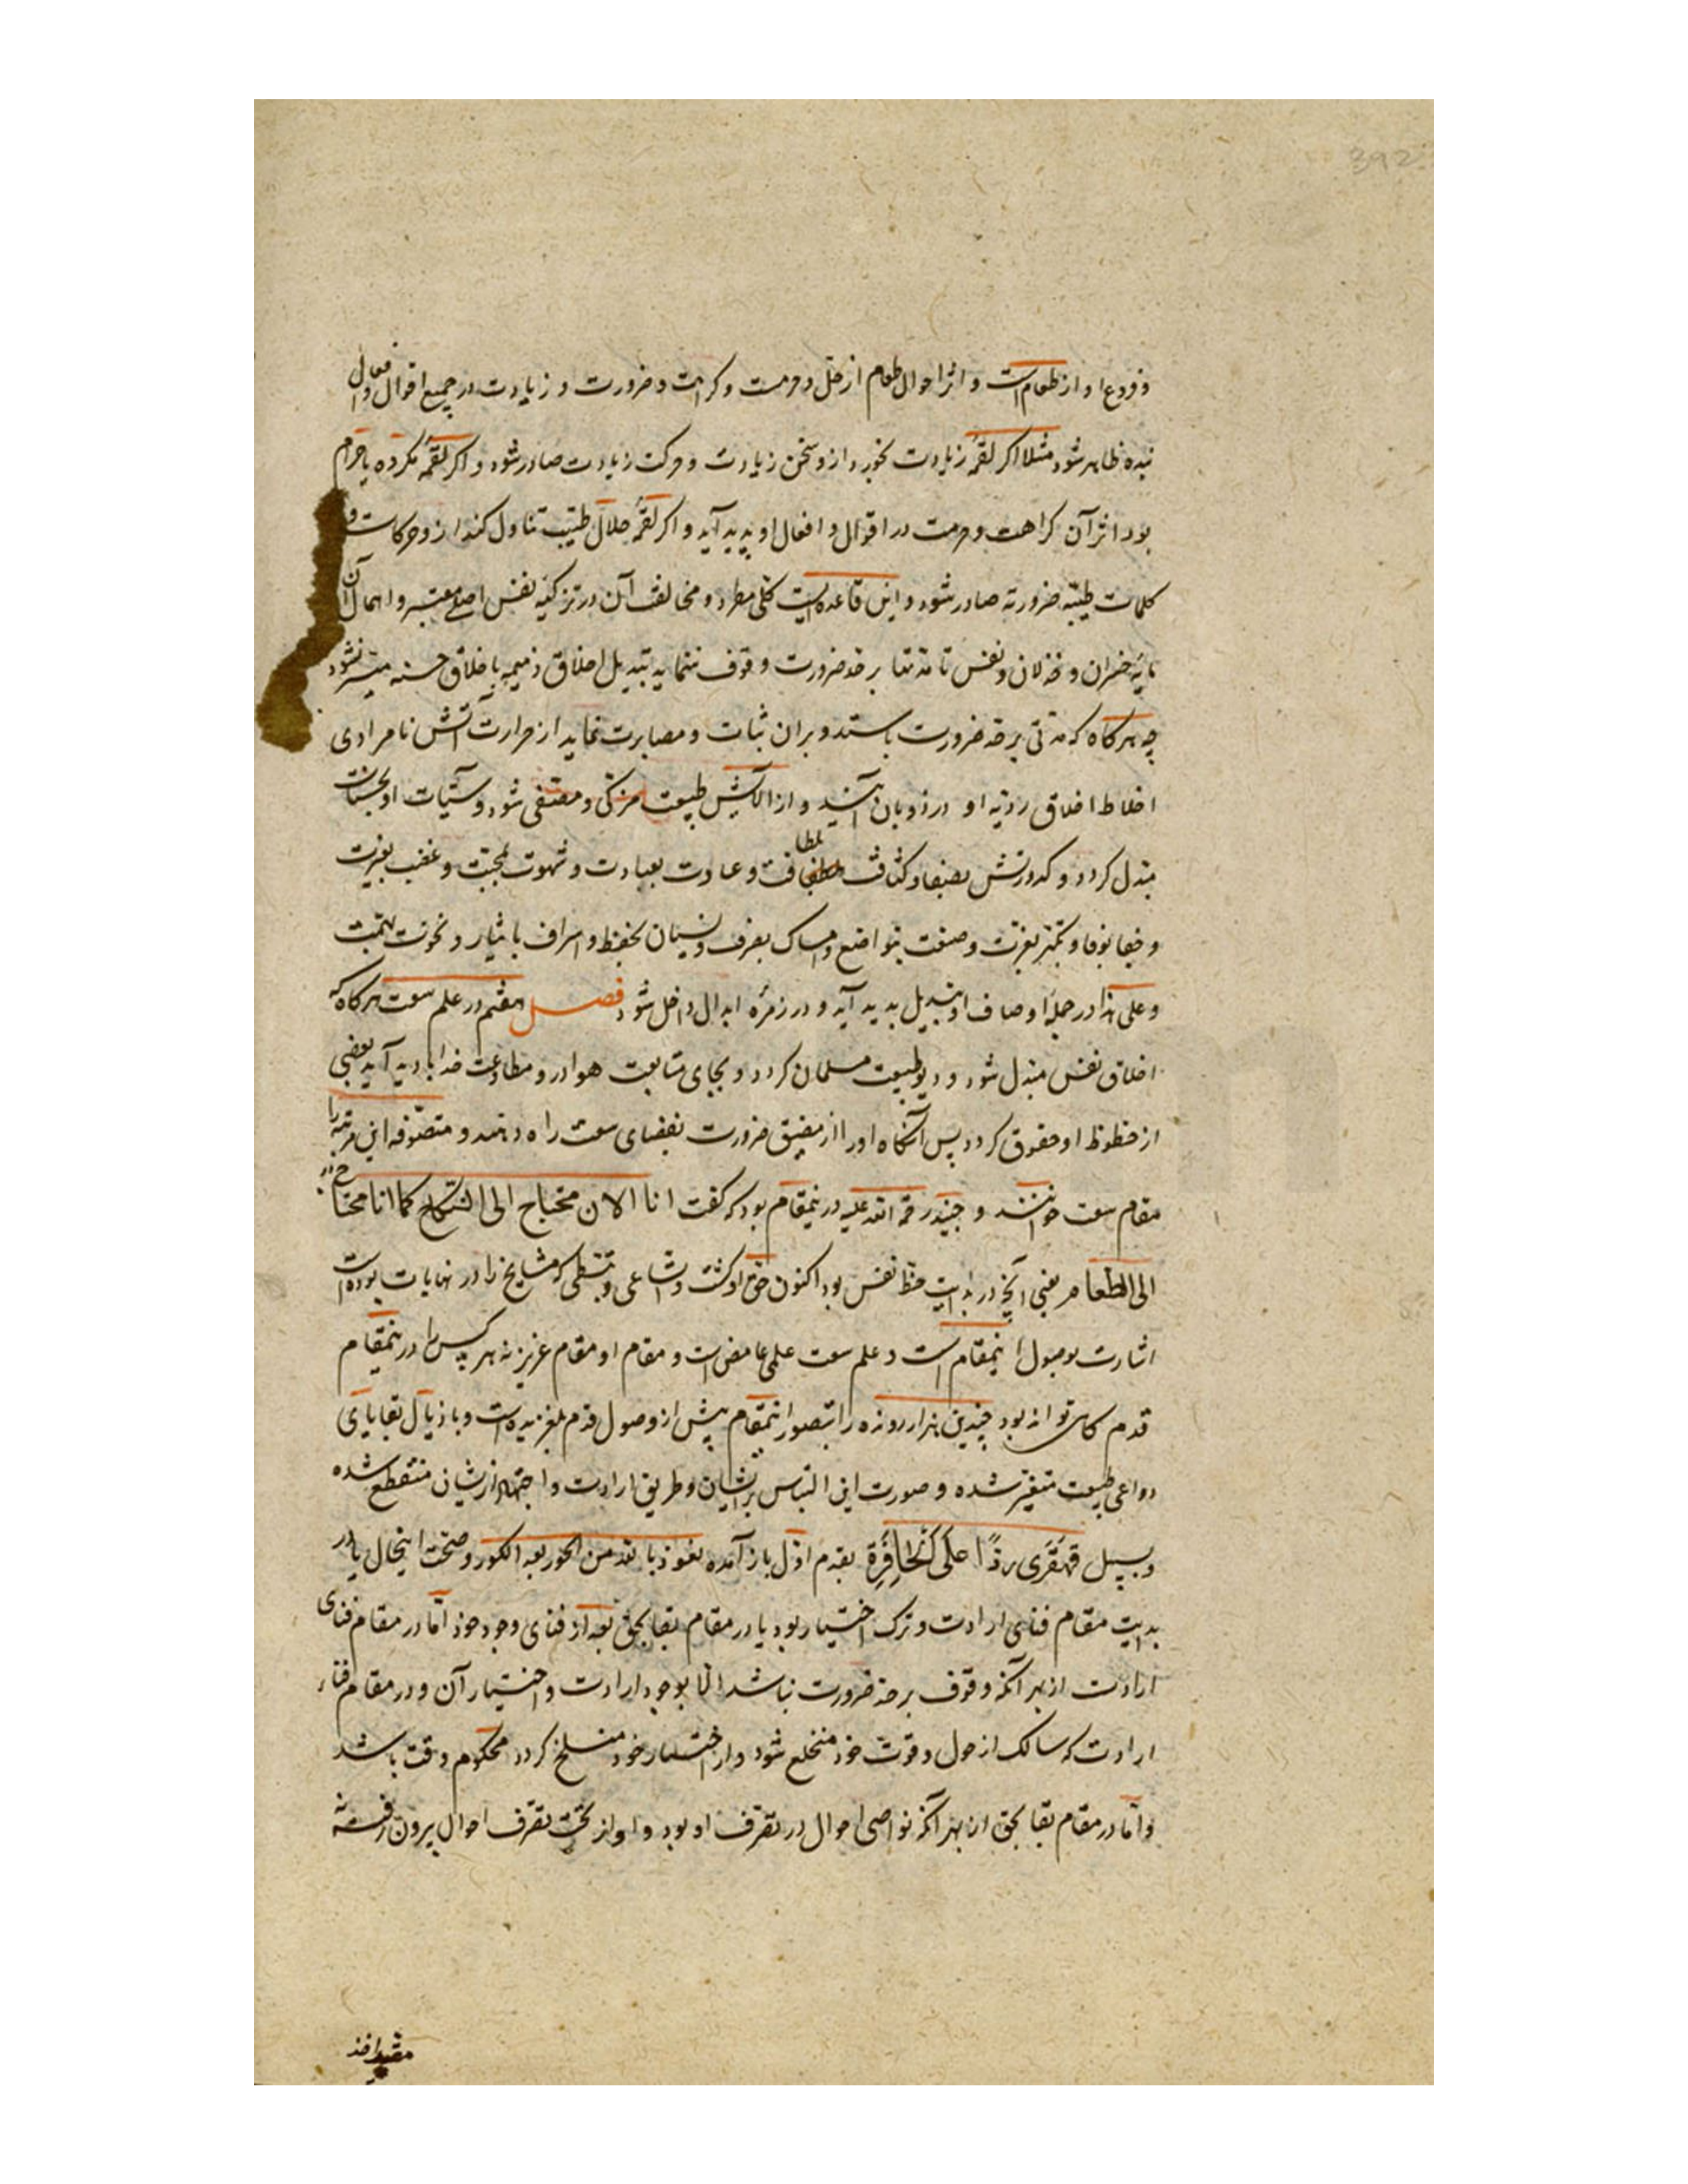 392
و فروع او از طعام است و اثر احوال طعام از حل و حرمت و کراهت و ضرورت و زیادت در جمیع اقوال و افعال
بنده ظاهر شود مثلا اکر لقمهٔ زیادت بخورد ازو سخن زیادت و حرکت زیادت صادر شود و اکر لقمهٔ مکروه یا حرام
بود اثر آن کراهت و حرمت در اقوال و افعال او پدید آید و اکر لقمهٔ حلال طیب تناول کند ازو حرکات و
کلمات طیبه ضروریه صادر شود و این قاعده ایست کلی مطرد و مخالف آن در تزکیه نفس اصلی معتبر و اهمال آن
مایه خسران و خذلان و نفس تا مدتها بر حد ضرورت وقوف ننماید تبدیل اخلاق ذمیمه باخلاق حسنه میسر نشود
چه هرکاه که مدتی بر حد ضرورت بایستد و بران ثبات و مصابرت نماید از حرارت آتش نامرادی
اخلاط اخلاق ردیه او در ذوبان آیند و از آلایش طبیعت مزکی و مصفی شود و سیئات او بحسنات
مبدل کردد و کدورتش بصفا و کثافت بلطافت و عادت بعبادت و شهوت بمحبت و غضب بغیرت
و جفا بوفا و تکبر بعزت و ضعت بتواضع و امساک بصرف و نسیان بحفظ و اسراف بایثار و نخوت بهمت
و علی هذا در جمله اوصاف او تبدیل پدید آید و در زمرهٔ ابدال داخل شود فصل هفتم در علم سعت هرکاه که
اخلاق نفس مبدل شود و دیو طبیعت مسلمان کردد و بجای متابعت هوا درو مطاوعت خدا پدید آید بعضی
از حظوظ او حقوق کردد پس آنکاه او را از مضیق ضرورت بفضای سعت راه دهند و متصوفه این مرتبه را
مقام سعت خوانند و جنید رحمة الله علیه درینمقام بود که کفت انا الان محتاج الی النکاح کما انا محتاج
الی الطعام یعنی آنچه در بدایت حظ نفس بود اکنون حق او کشت و اتساعی و تبسطی که مشایخ را در نهایات بوده است
اشارت بوصول اینمقام است و علم سعت علمی غامض است و مقام او مقام عزیز نه هر کس را درینمقام
قدم کاهی تواند بود چندین هزار رونده را بتصور اینمقام پیش از وصول قدم لغزیده است و باذیال بقایای
دواعی طبیعت متغیر شده و صورت این التباس بر ایشان و طریق ارادت و اجتهاد ازیشان منقطع شده
و بسبیل قهقری ردا علی الحافرة بقدم اول باز آمده نعوذ بالله من الحور بعد الکور و صحت اینحال یا در
بدایت مقام فنای ارادت و ترک اختیار بود یا در مقام بقا بحق بعد از فنای وجود خود اما در مقام فنای
ارادت از بهر آنکه وقوف بر حد ضرورت نباشد الا بوجود ارادت و اختیار آن و در مقام فنا
ارادت که سالک از حول و قوت خود منخلع شود و از اختیار خود منسلخ کردد محکوم وقت باشد
و اما در مقام بقا بحق از بهر آنکه نواصی احوال در تصرف او بود و او از تحت تصرف احوال بیرون رفته نه